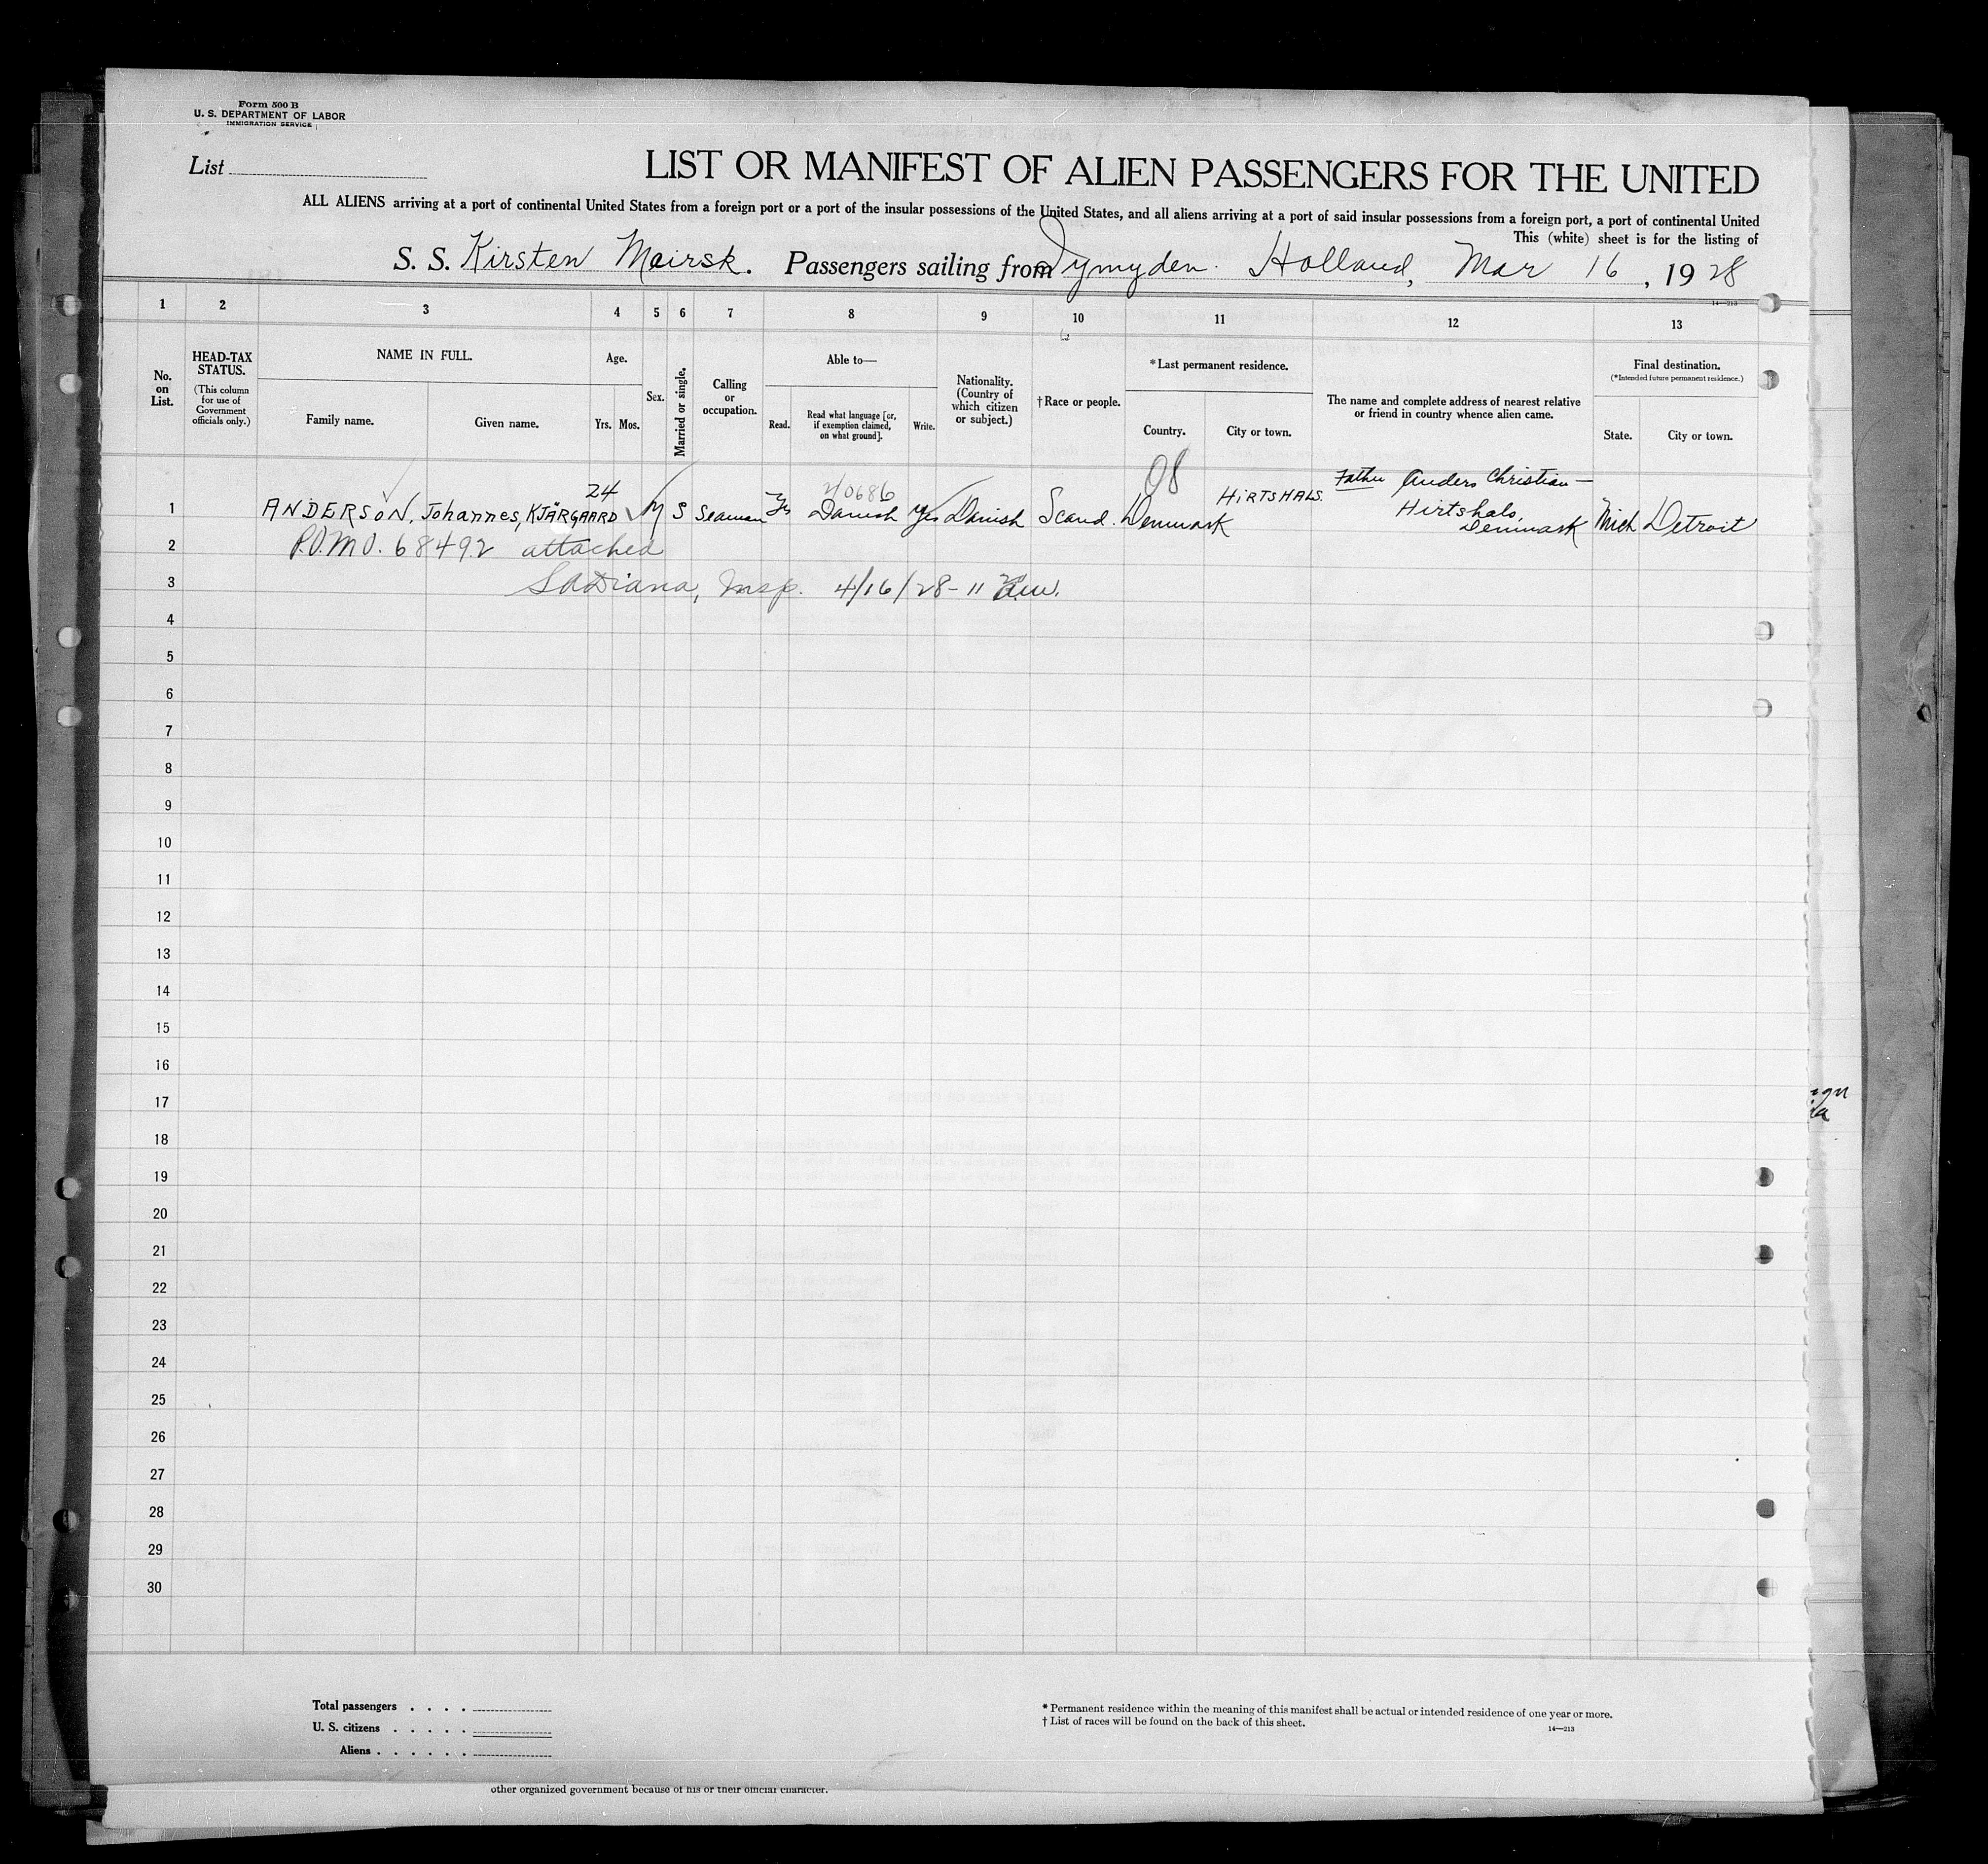 Form 500 B
U. S. DEPARTMENT OF LABOR
IMMIGRATION SERVICE
List
LIST OR MANIFEST OF ALIEN PASSENGERS FOR THE UNITED
ALL ALIENS arriving at a port of continental United States from a foreign port or a port of the insular possessions of the United States, and all aliens arriving at a port of said insular possessions from a foreign port, a port of continental United
This (white) sheet is for the listing of
S. S. Kirsten Mairsk. Passengers sailing from Iymyden. Holland, Mar 16, 1928
14—213
1 2 3 4 5 6 7 8 9 10 11 12 13
No. on List.
HEAD-TAX STATUS.
(This column for use of Government officials only.)
NAME IN FULL.
Family name. Given name.
Age.
Yrs. Mos.
Sex.
Married or single.
Calling or occupation.
Able to—
Read. Read what language [or, if exemption claimed, on what ground]. Write.
Nationality. (Country of which citizen or subject.)
†Race or people.
*Last permanent residence.
Country. City or town.
The name and complete address of nearest relative or friend in country whence alien came.
Final destination.
(*Intended future permanent residence.)
State. City or town.
08
24 2/0686 HIRTSHALS. Father Anders Christian—
1 ANDERSON, Johannes, KJÄRGAARD M S Seaman Yes Danish Yes Danish Scand. Denmark Hirtshals, Denmark Mich Detroit
2 P.O.M.O. 68492 attached
3 Insp. 4/16/28-11
4
5
6
7
8
9
10
11
12
13
14
15
16
17
18
19
20
21
22
23
24
25
26
27
28
29
30
Total passengers . . . .
U. S. citizens . . . . .
Aliens . . . . . .
* Permanent residence within the meaning of this manifest shall be actual or intended residence of one year or more.
† List of races will be found on the back of this sheet.
14—213
other organized government because of his or their official character.